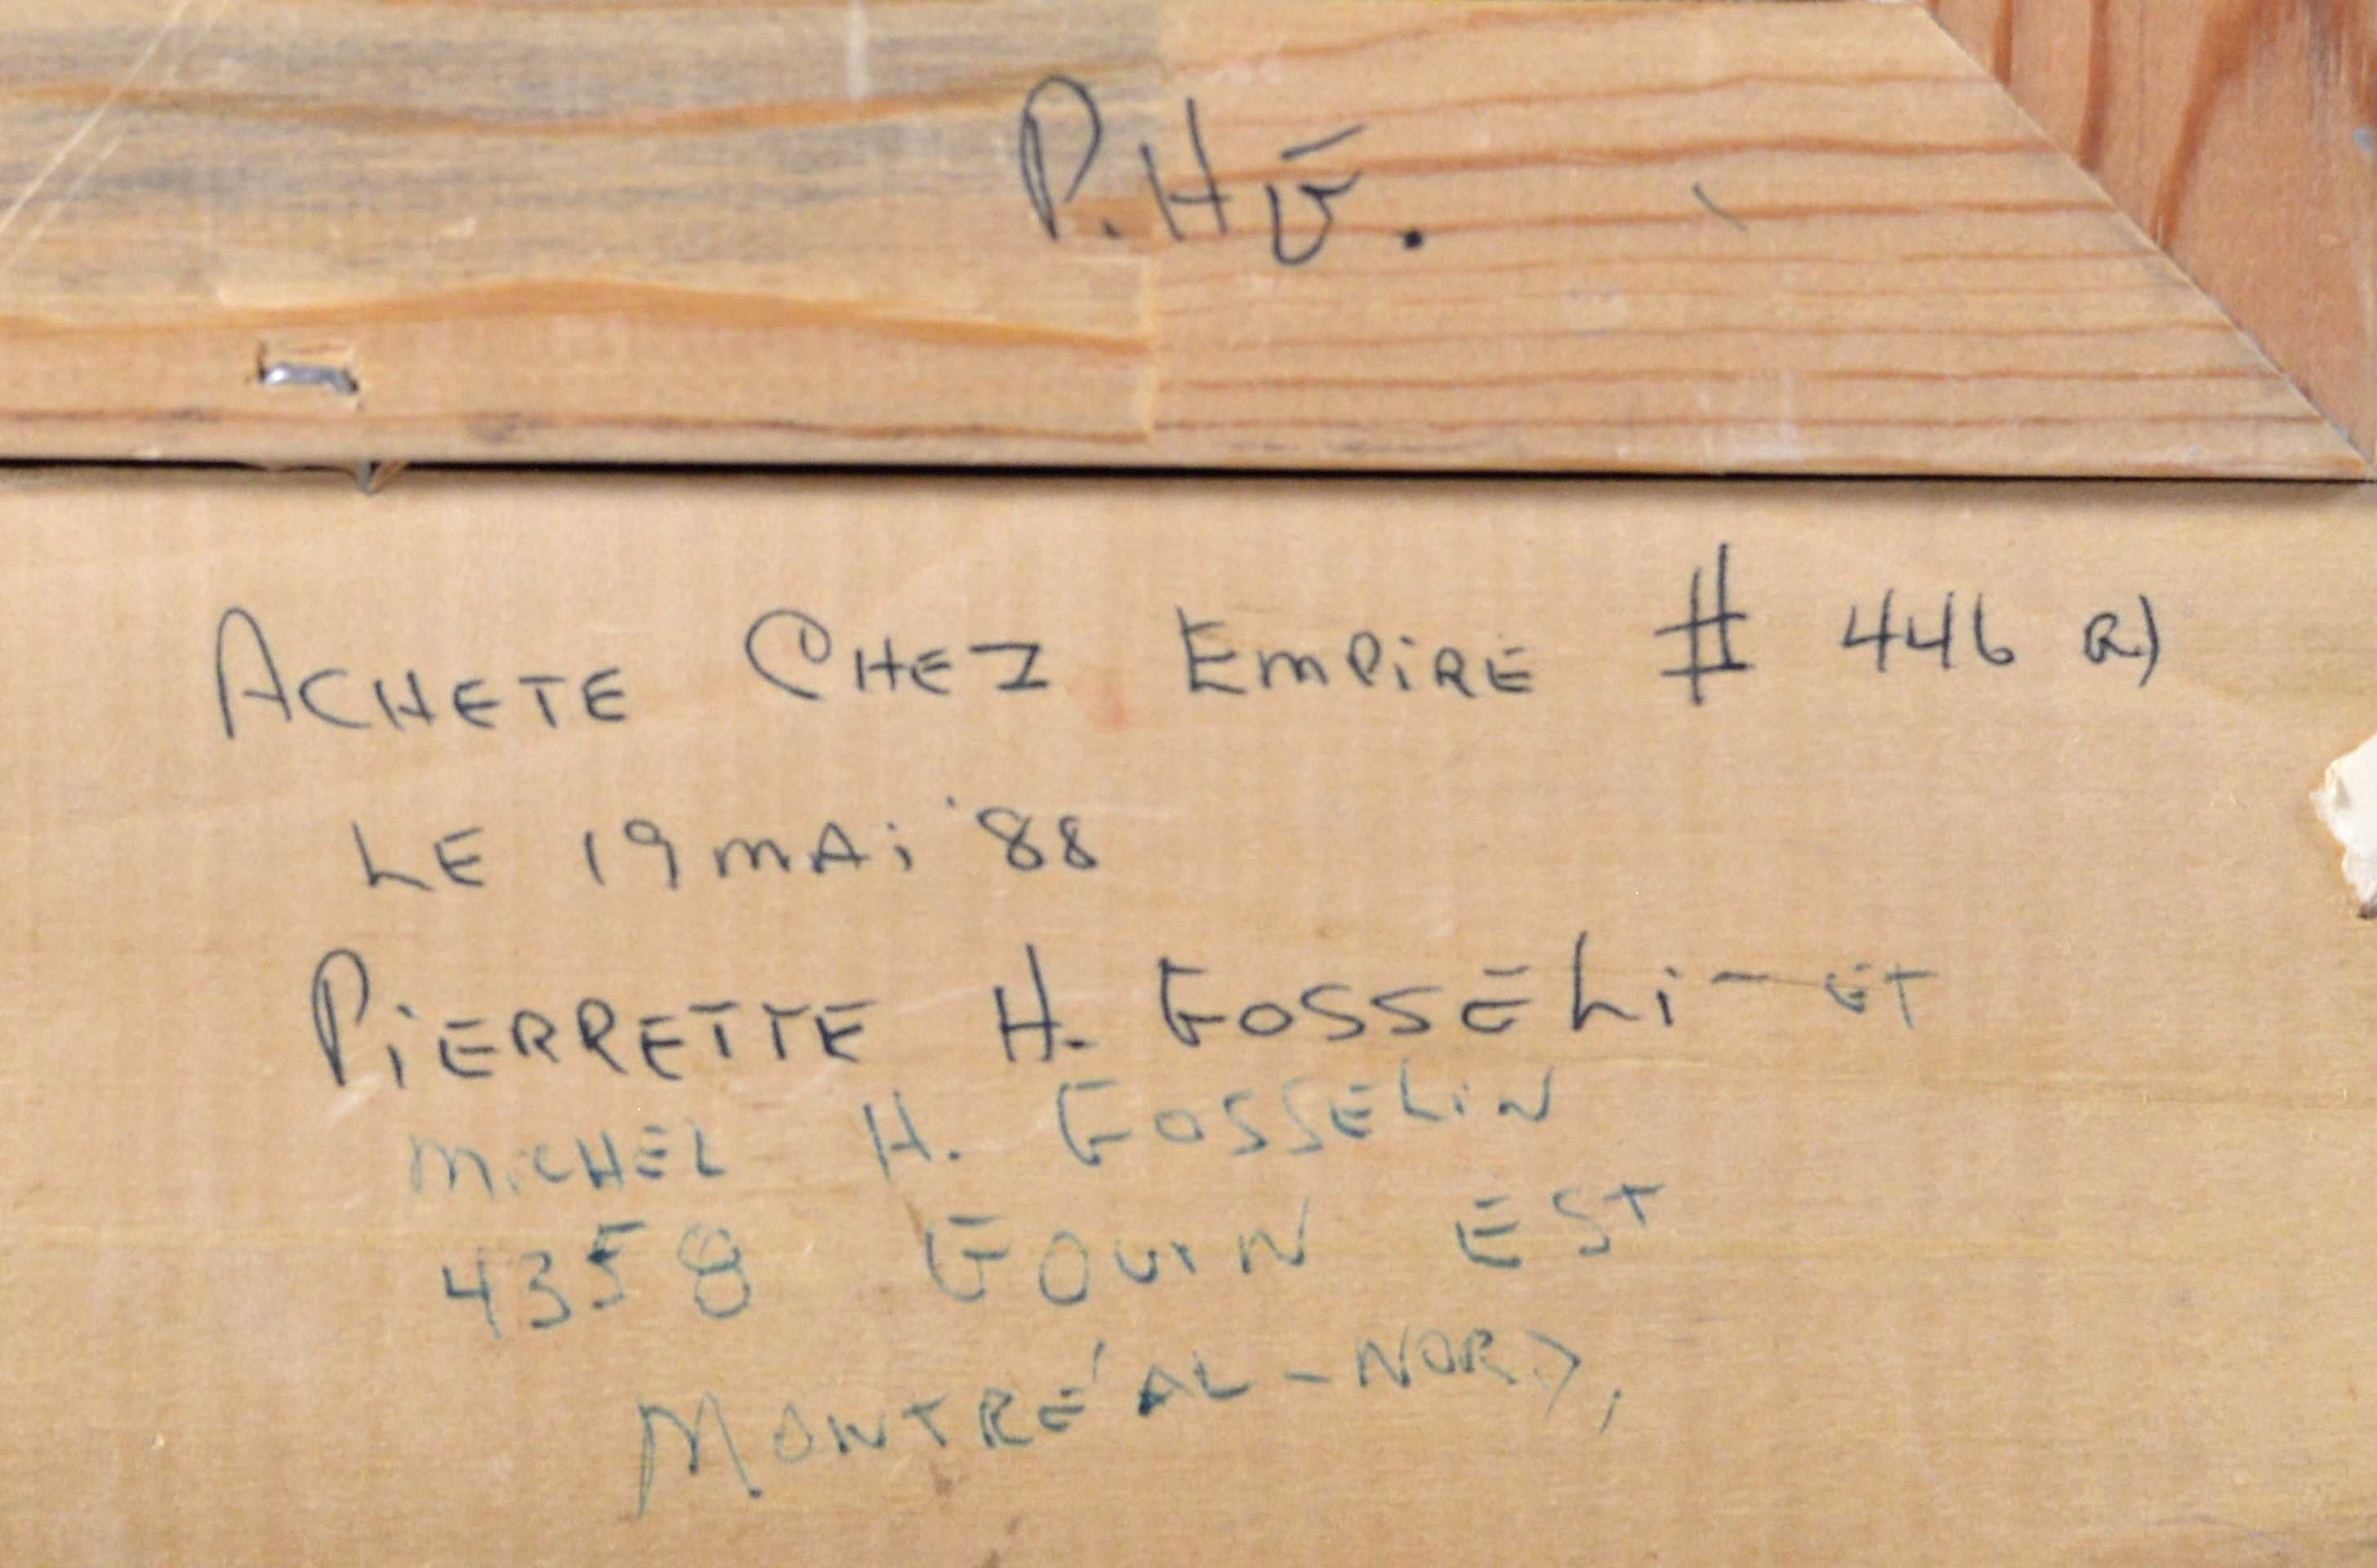 P.HG.
ACHETE CHEZ EMPIRE # 446 R)
LE 19 MAI '88
PIERRETTE H. GOSSELIN ET
MICHEL H. GOSSELIN
4358 GOUIN EST
MONTRÉAL-NORD,